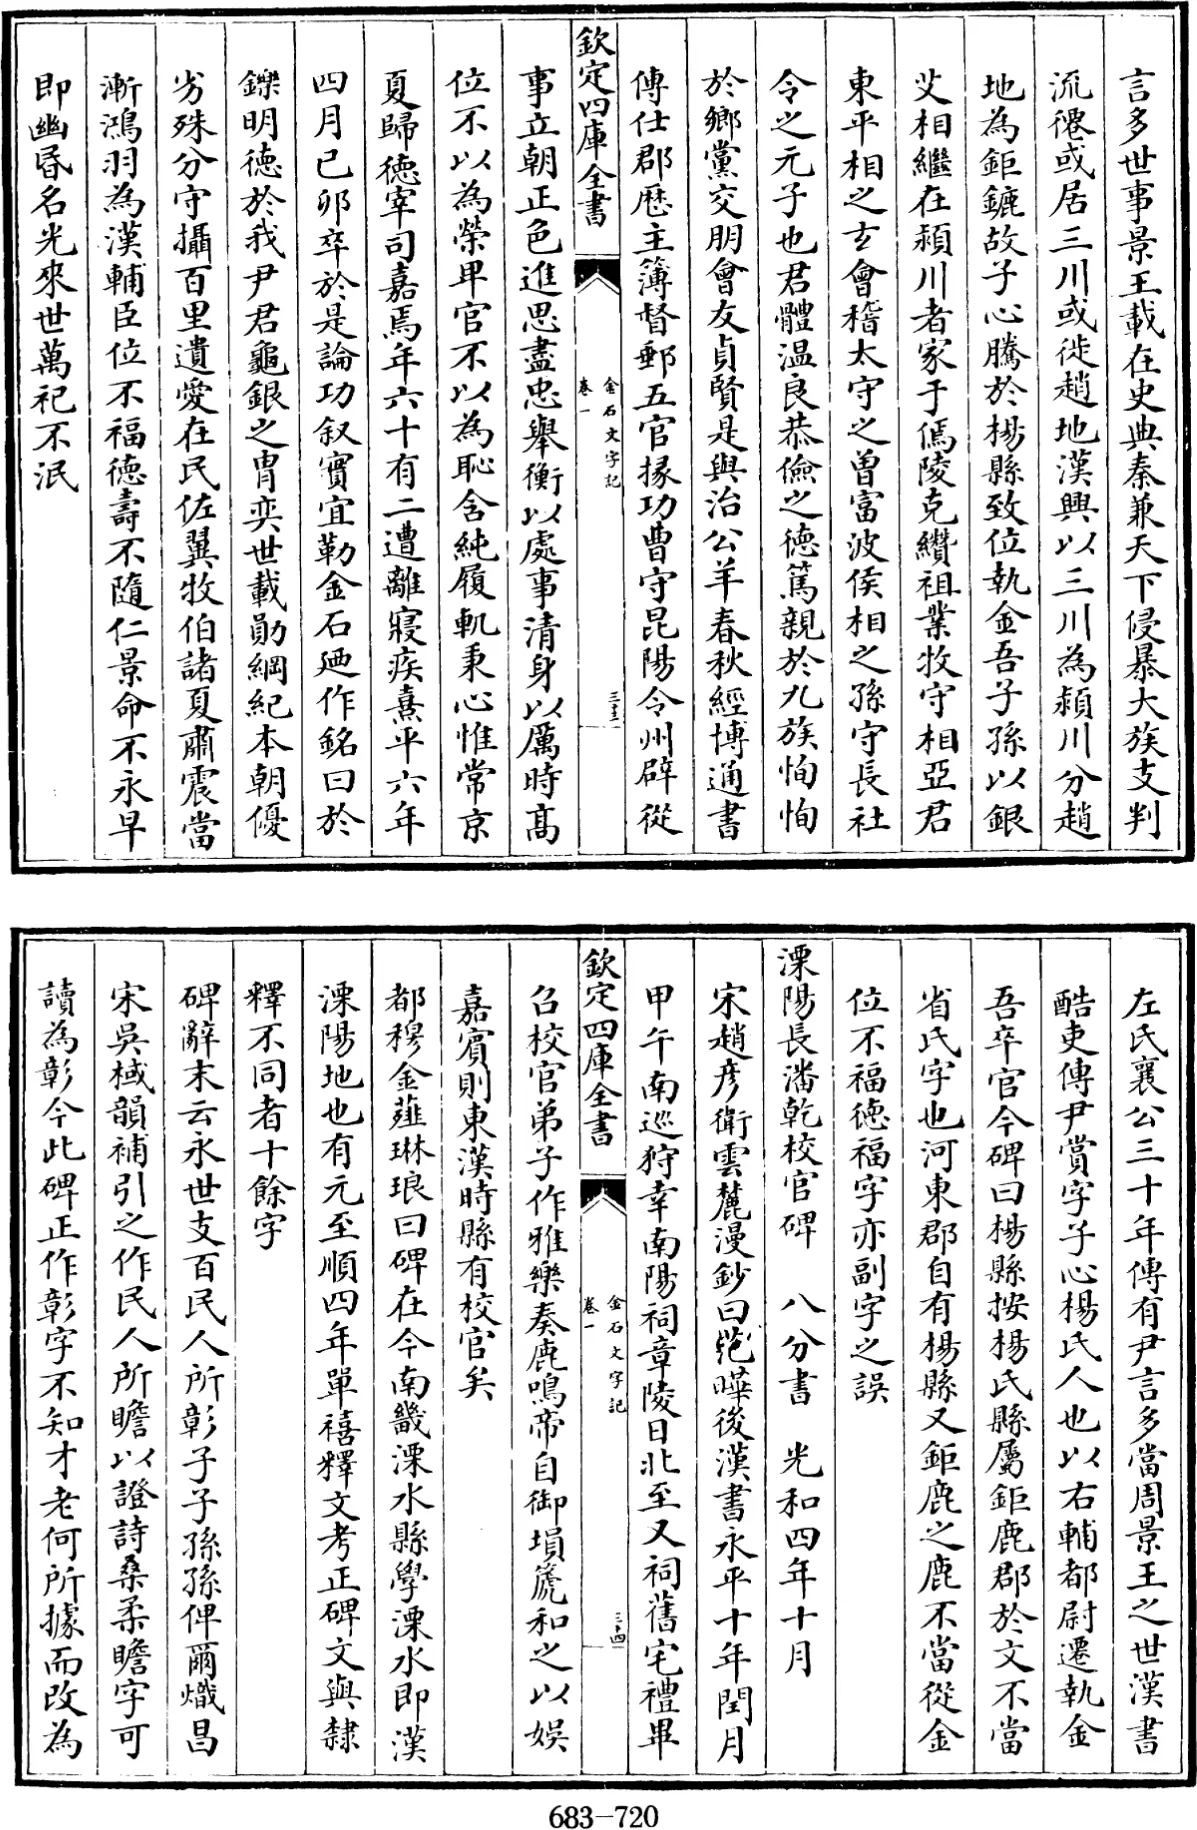 言多世事景王載在史典秦兼天下侵暴大族支判
流僊或居三川或徙趙地漢興以三川為潁川分趙
地為鉅鏕故子心騰於楊縣致位執金吾子孫以銀
艾相繼在潁川者家于傿陵克纘祖業牧守相亞君
東平相之玄會稽太守之曽富波侯相之孫守長社
令之元子也君體温良恭儉之徳篤親於九族恂恂
於鄉黨交朋會友貞賢是與治公羊春秋經博通書
傳仕郡歴主簿督郵五官掾功曹守昆陽令州辟從
欽定四庫全書
金石文字記
卷一
三十三
事立朝正色進思盡忠舉衡以處事清身以厲時髙
位不以為榮卑官不以為恥含純履軌秉心惟常京
夏歸徳宰司嘉焉年六十有二遭離寢疾熹平六年
四月己卯卒於是論功叙實宜勒金石迺作銘曰於
鑠明徳於我尹君龜銀之冑奕世載勛綱紀本朝優
劣殊分守攝百里遺愛在民佐翼牧伯諸夏肅震當
漸鴻羽為漢輔臣位不福徳壽不隨仁景命不永早
即幽昬名光來世萬祀不泯
左氏襄公三十年傳有尹言多當周景王之世漢書
酷吏傳尹賞字子心楊氏人也以右輔都尉遷執金
吾卒官今碑曰楊縣按楊氏縣屬鉅鹿郡於文不當
省氏字也河東郡自有楊縣又鉅鹿之鹿不當從金
位不福徳福字亦副字之誤
溧陽長潘乾校官碑 八分書 光和四年十月
宋趙彦衛雲麓漫鈔曰范曄後漢書永平十年閏月
甲午南巡狩幸南陽祠章陵日北至又祠舊宅禮畢
欽定四庫全書
金石文字記
卷一
三十四
召校官弟子作雅樂奏鹿鳴帝自御塤篪和之以娱
嘉賓則東漢時縣有校官矣
都穆金薤琳琅曰碑在今南畿溧水縣學溧水即漢
溧陽地也有元至順四年單禧釋文考正碑文與隸
釋不同者十餘字
碑辭末云永世支百民人所彰子子孫孫俾爾熾昌
宋吳棫韻補引之作民人所瞻以證詩桑柔瞻字可
讀為彰今此碑正作彰字不知才老何所據而改為
683-720